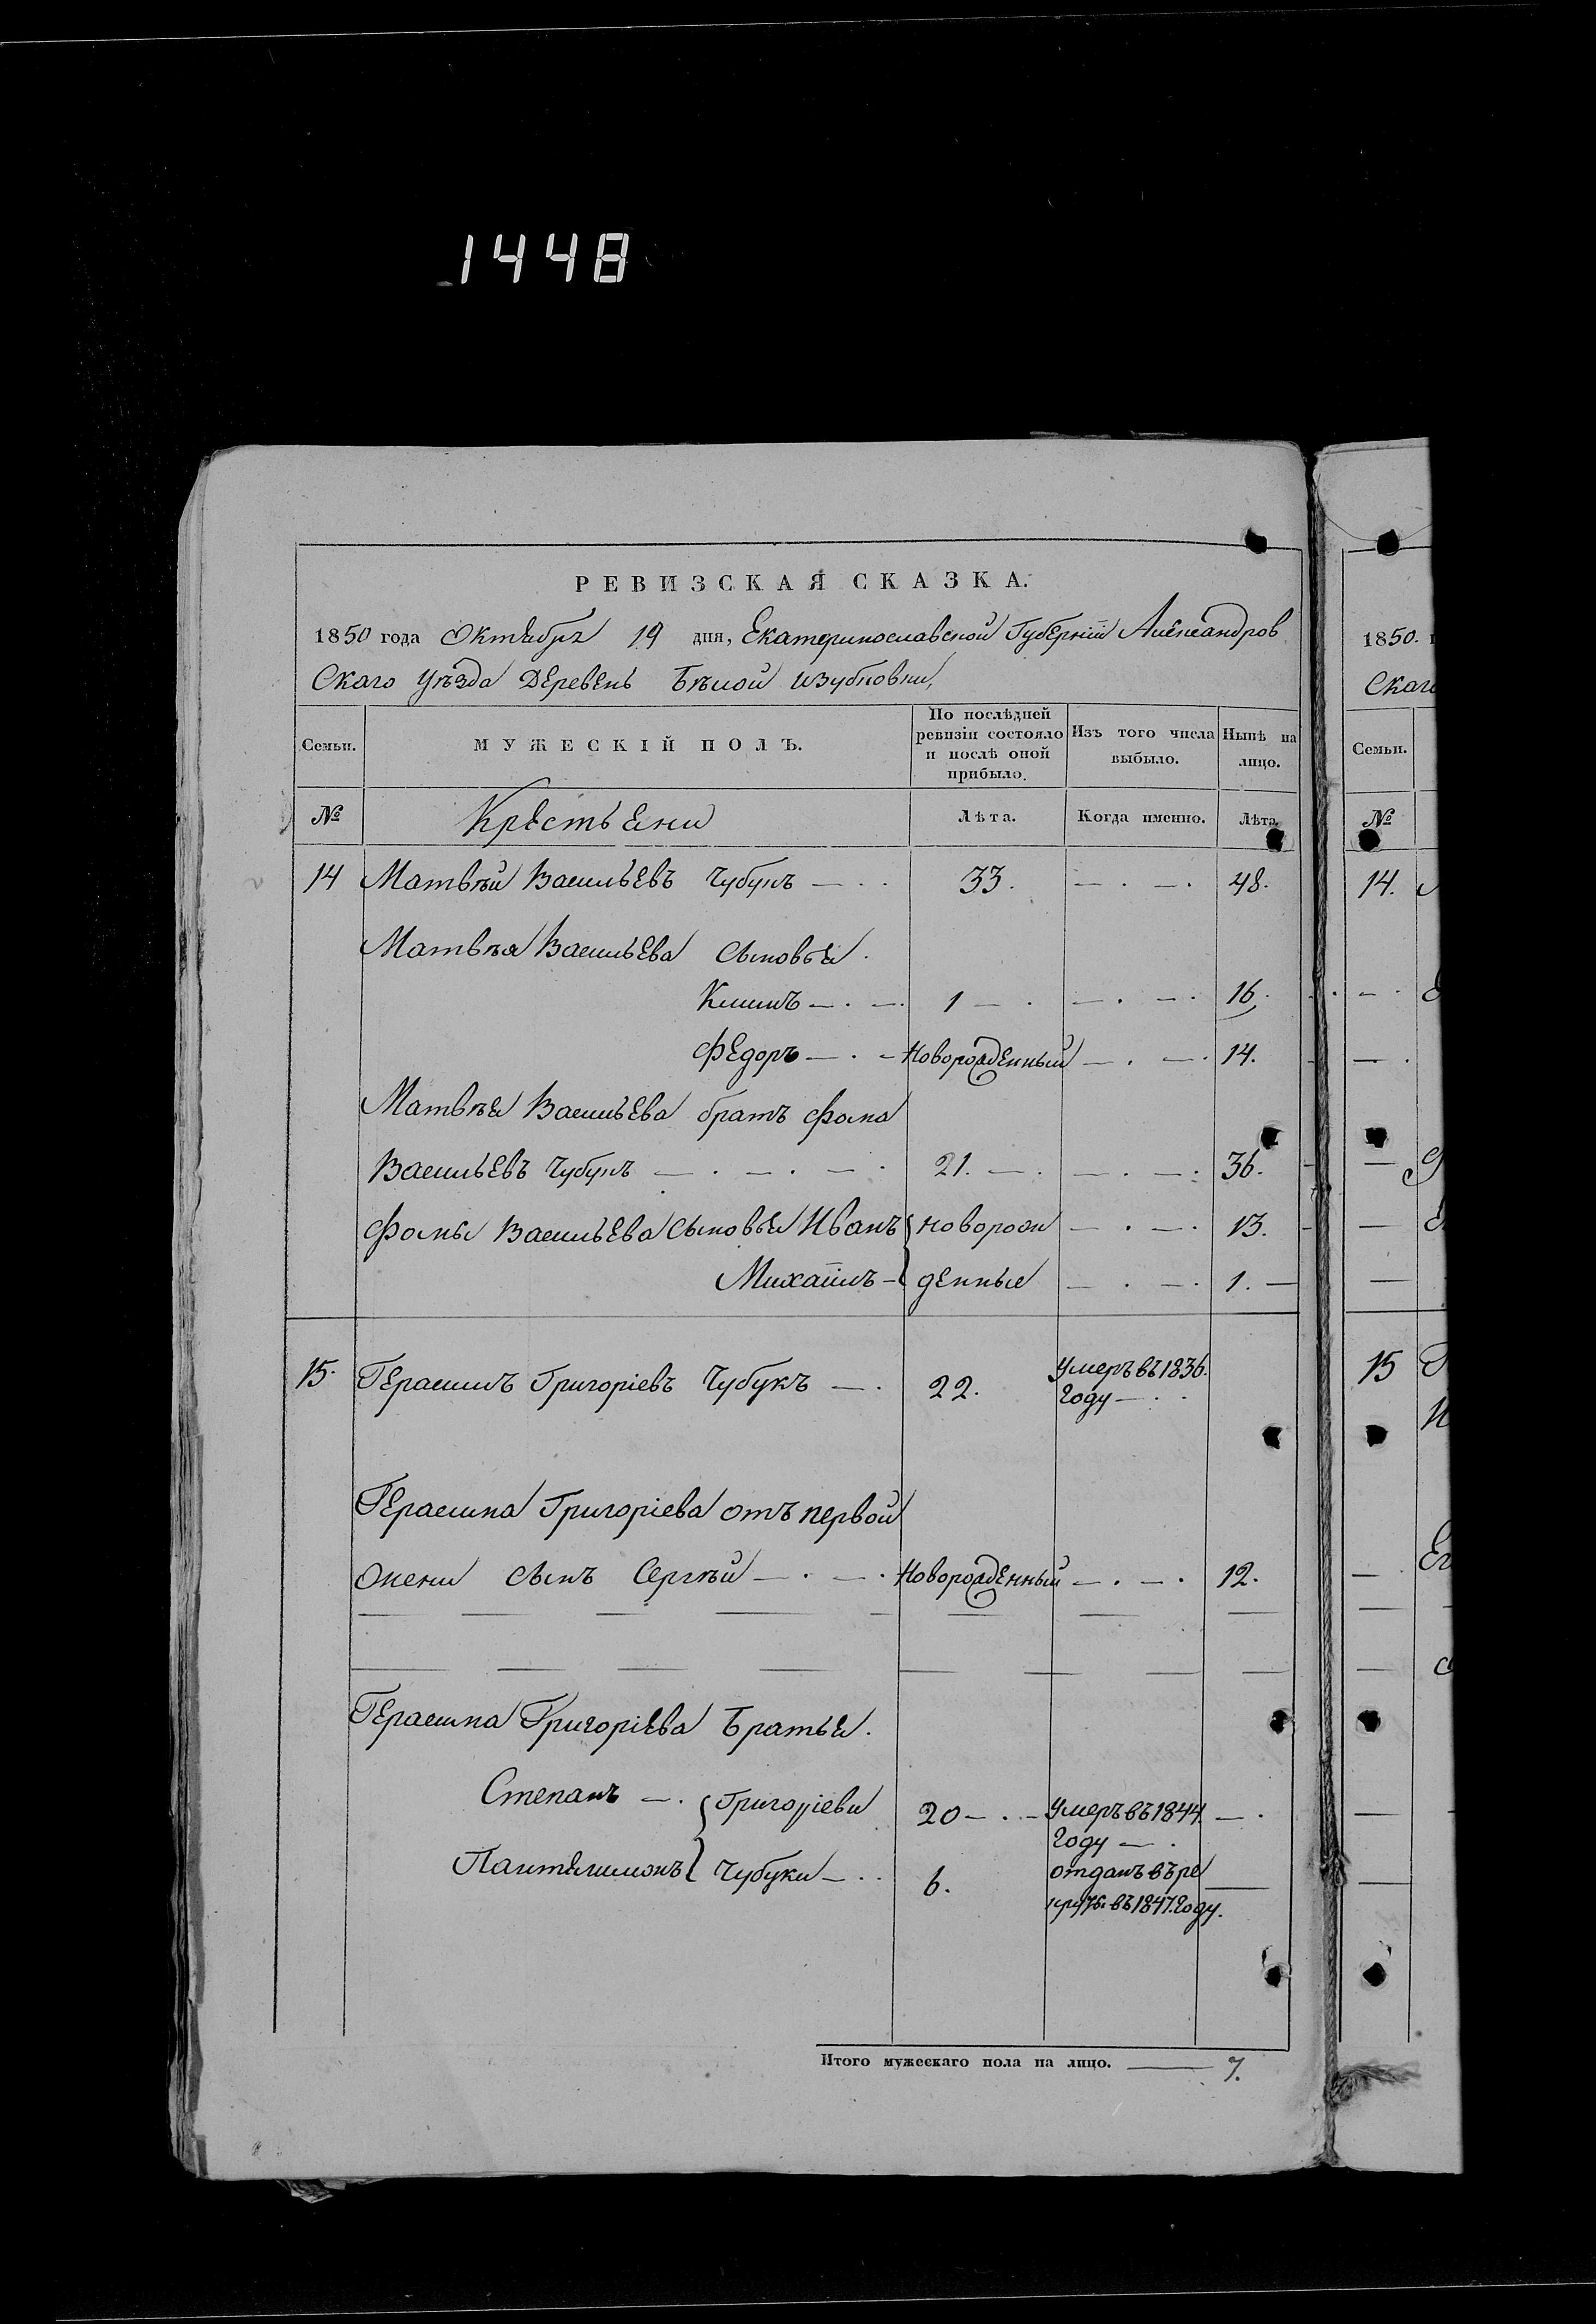 1448
РЕВИЗСКАЯ СКАЗКА.
1850 года Октября 19 дня, Екатеринославской Губерніи Александров
Скаго Уѣзда Деревень Бѣлой
Семьи. МУЖЕСКІЙ ПОЛЪ. По послѣдней ревизіи состояло и послѣ оной прибыло. Изъ того числа выбыло. Нынѣ на лицо.
№ Крестьяни Лѣта. Когда именно. Лѣта
14 Матвѣй Васильевъ Чубукъ — . . 33. — . — . 48.
Матвѣя Васильева сыновья.
Климъ — . — . 1 — . — . — . 16.
Федоръ — . — Новорожденный — . — . 14.
Матвѣя Васильева братъ Фома
Васильевъ Чубукъ — . — . — . 21. — . — . — . 36.
Фомы Васильева сыновья Иванъ новорож — . — . 13.
Михаилъ — денные — . — . 1. —
15. Герасимъ Григоріевъ Чубукъ — . 22. Умеръ въ 1836.
Году — . .
Герасима Григоріева отъ первой
жены сынъ Сергѣй — . — . Новорожденный — . — . 12.
Герасима Григоріева Братья.
Степанъ — . Григоріеви 20 — . — Умеръ въ 1844. — .
Году — .
Пантелимонъ Чубуки — . . 6. отданъ въ ре
круты въ 1847. Году.
Итого мужескаго пола на лицо. — 7.
1850.
Скаго
Семьи.
№
14.
15